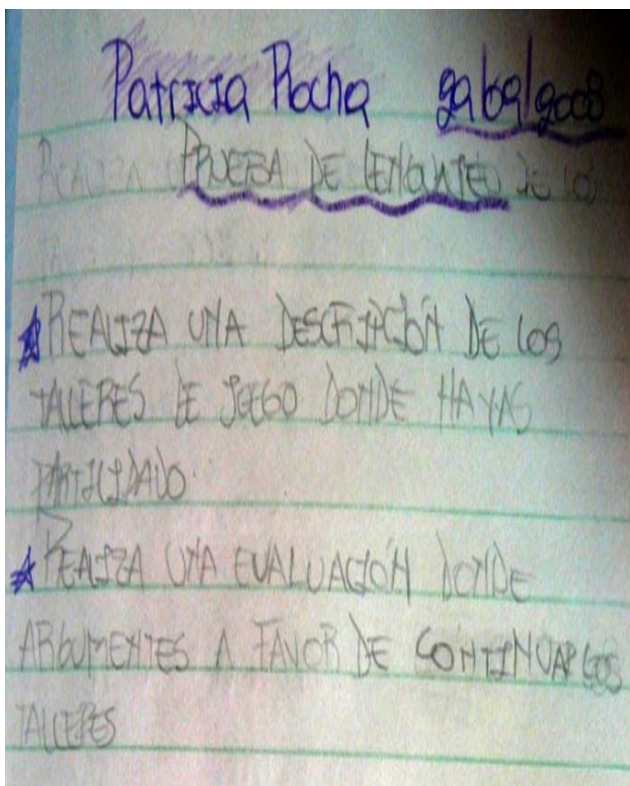 Patricia Rocha
PRUEBA DE LENGUAJE DE LOS
★ REALIZA UNA DESCRIPCIÓN DE LOS
TALLERES DE JUEGO DONDE HAYAS
PARTICIPADO.
★ REALIZA UNA EVALUACIÓN DONDE
ARGUMENTES A FAVOR DE CONTINUAR LOS
TALLERES